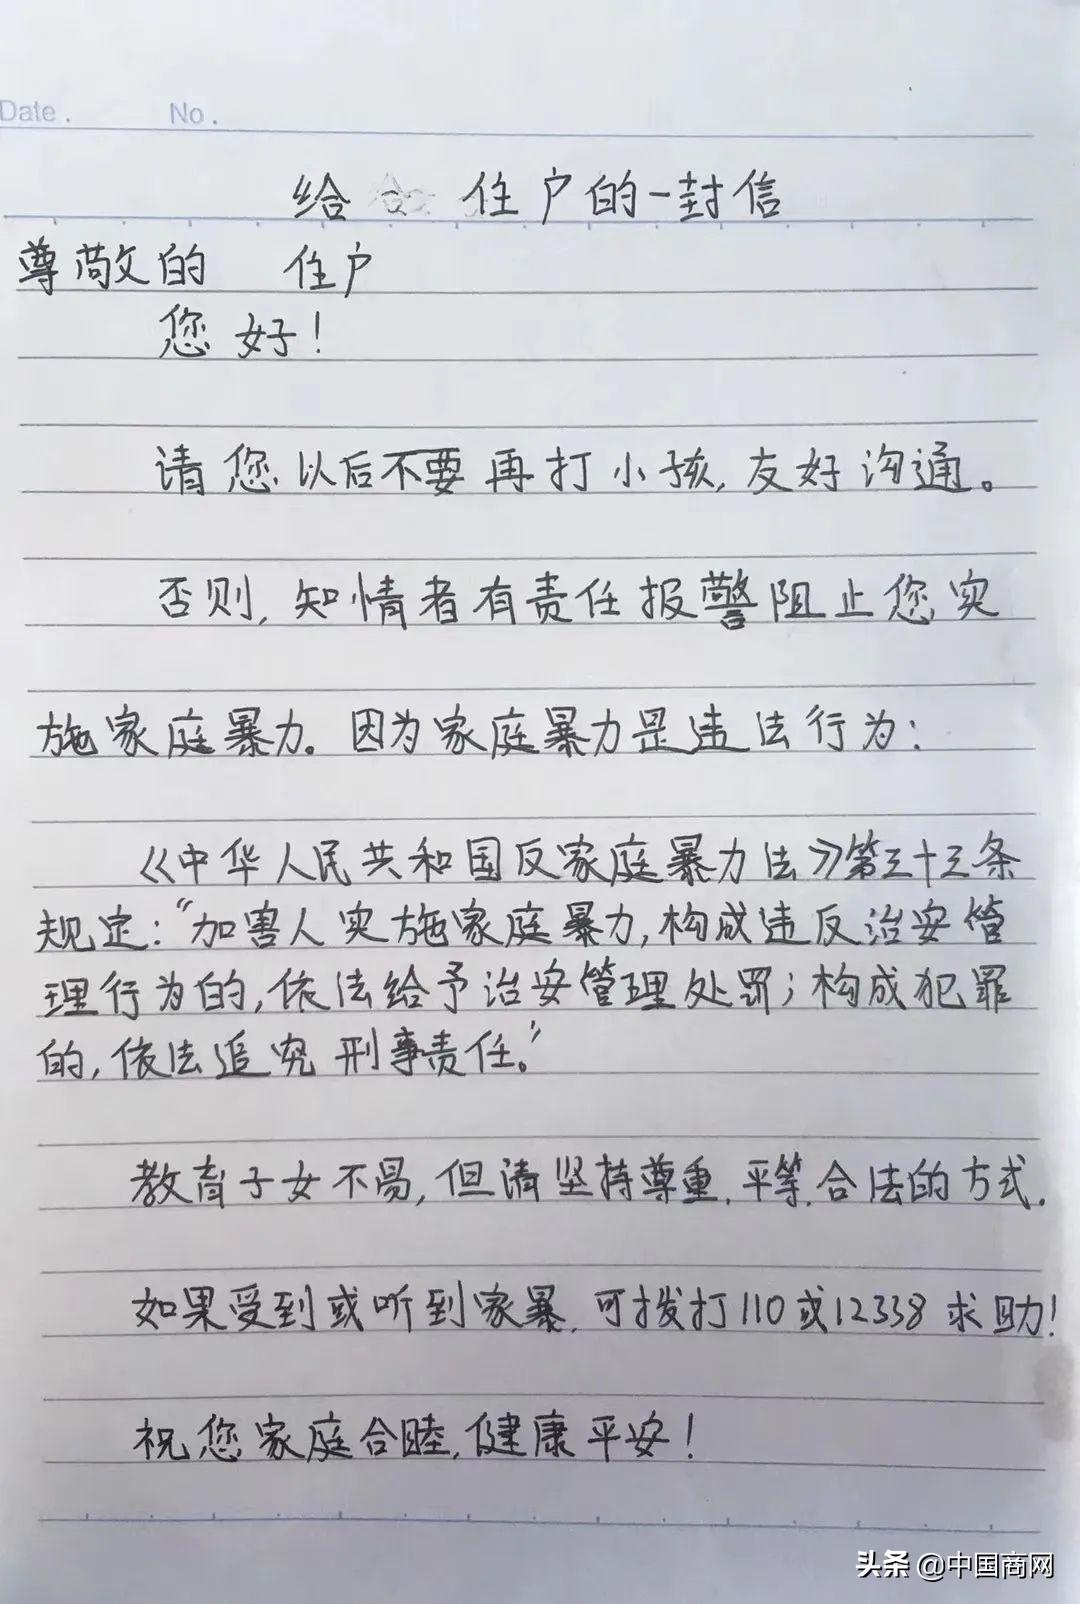 Date. No.
给 住户的一封信
尊敬的 住户
您好!
请您以后不要再打小孩,友好沟通。
否则,知情者有责任报警阻止您实
施家庭暴力。因为家庭暴力是违法行为:
《中华人民共和国反家庭暴力法》第三十三条
规定:“加害人实施家庭暴力,构成违反治安管
理行为的,依法给予治安管理处罚;构成犯罪
的,依法追究刑事责任。”
教育子女不易,但请坚持尊重、平等、合法的方式。
如果受到或听到家暴,可拨打110或12338求助!
祝您家庭合睦,健康平安!
头条 @中国商网